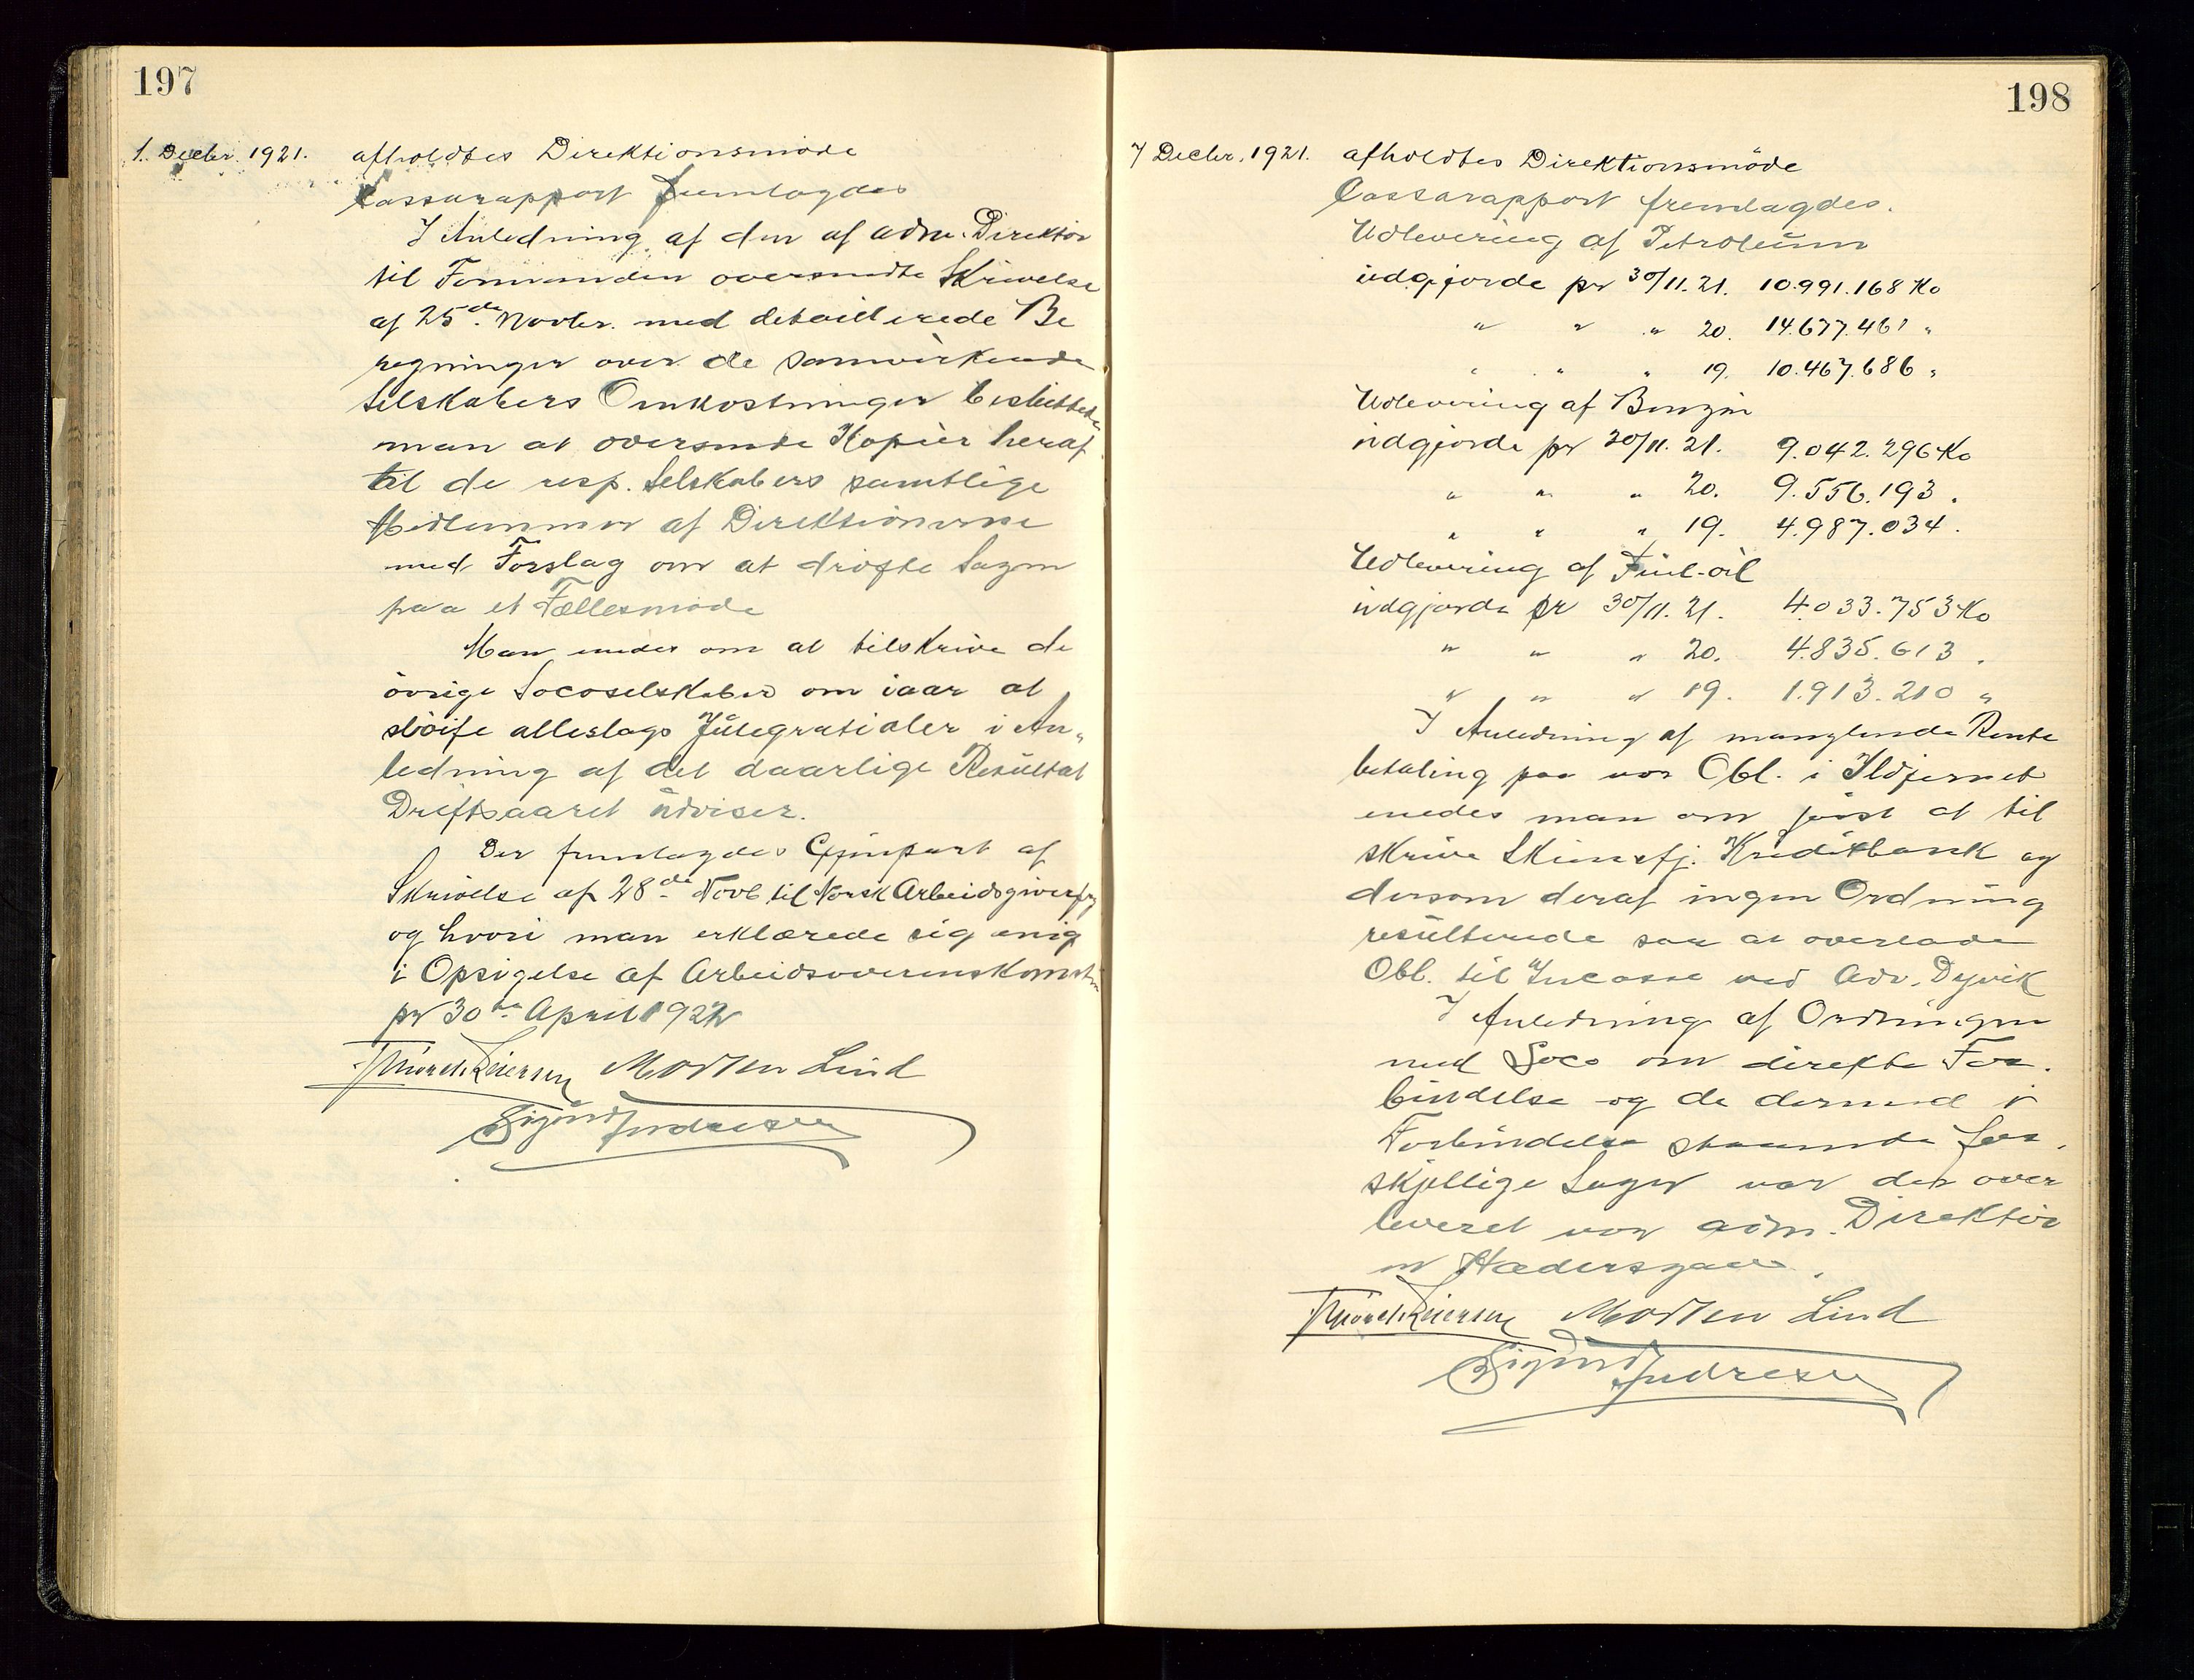 197
1. Decbr. 1921. afholdtes Direktionsmöde
Cassarapport fremlagdes
I Anledning af den af adm. Direktör
til Formanden oversendte Skrivelse
af 25de Novbr. med detaillerede Be
regninger over de samvirkende
Selskabers Omkostninger besluttede
man at oversende Kopier heraf
til de resp. Selskabers samtlige
Medlemmer af Direktionerne
med Forslag om at dröfte Sagen
paa et Fællesmöde
Man enedes om at tilskrive de
övrige Socoselskaber om iaar at
slöife alleslags Julegratialer i An„
ledning af det daarlige Resultat
Driftsaaret udviser.
Der fremlagdes Gjenpart af
Skrivelse af 28de Novb. til Norsk Arbeidsgiverfg
og hvori man erklærede sig enig
i Opsigelse af Arbeidsoverenskomsten
pr 30te April 1922
Morten Lind
Sigurd Andresen
198
7 Decbr. 1921. afholdtes Direktionsmöde
Cassarapport fremlagdes.
Udlevering af Petroleum
udgjorde pr 30/11.21. 10.991.168 Ko
" " " 20. 14.677.461 "
" " " 19. 10.467.686 "
Udlevering af Benzin
udgjorde pr 30/11.21. 9.042.296 Ko
" " " 20. 9.556.193 "
" " " 19. 4.987.034 "
Udlevering af Fuel-oil
udgjorde pr 30/11.21. 4.033.753 Ko
" " " 20. 4.835.613 "
" " " 19. 1.913.210 "
I Anledning af manglende Rente
betaling paa vor Obl. i Ildjernet
enedes man om först at til
skrive Skiensfj. Kreditbank og
dersom deraf ingen Ordning
resulterede saa at overlade
Obl. til Incasso ved Adv. Dyvik
I Anledning af Ordningen
med Soco om direkte For.
bindelse og de dermed i
Forbindelse staaende for.
skjellige Sager var der over
leveret vor adm. Direktör
en Hædersgave.
Morten Lind
Sigurd Andresen